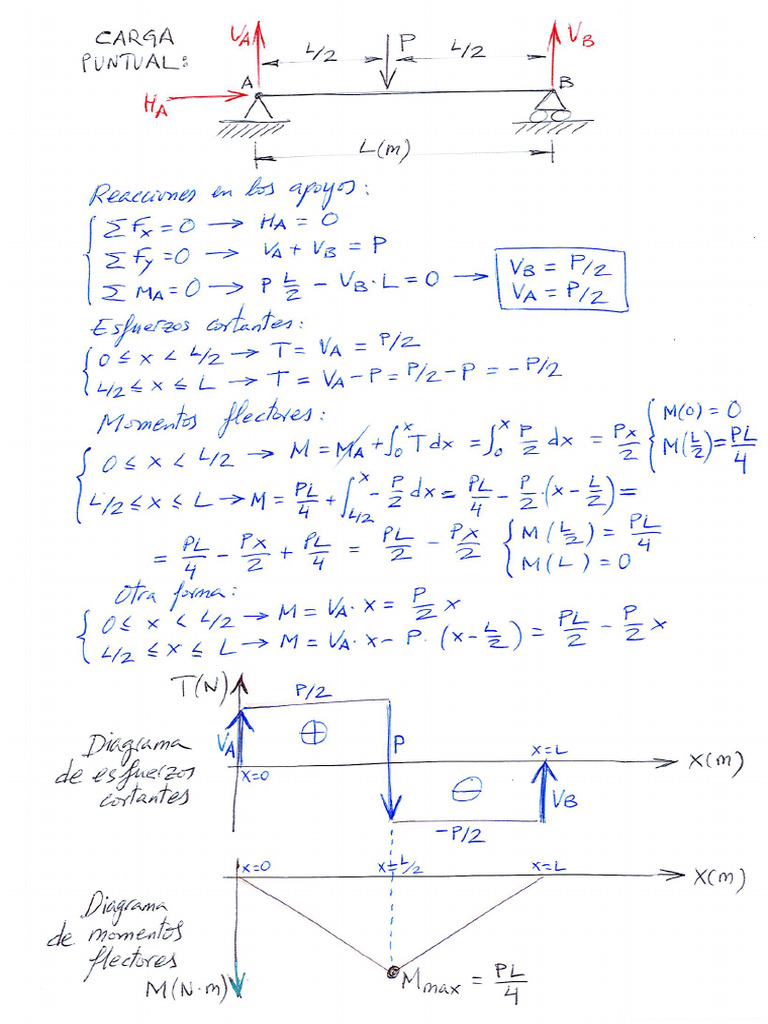 CARGA PUNTUAL:
V_A L/2 P L/2 V_B
H_A A B
L(m)
Reacciones en los apoyos:
ΣF_x=0 → H_A = 0
ΣF_y=0 → V_A + V_B = P
ΣM_A=0 → P L/2 - V_B·L = 0 → V_B = P/2
V_A = P/2
Esfuerzos cortantes:
0 ≤ x < L/2 → T = V_A = P/2
L/2 ≤ x ≤ L → T = V_A - P = P/2 - P = -P/2
Momentos flectores:
0 ≤ x < L/2 → M = M_A + ∫_0^x T dx = ∫_0^x P/2 dx = Px/2 { M(0) = 0
M(L/2) = PL/4
L/2 ≤ x ≤ L → M = PL/4 + ∫_{L/2}^x - P/2 dx = PL/4 - P/2·(x - L/2) =
= PL/4 - Px/2 + PL/4 = PL/2 - Px/2 { M(L/2) = PL/4
M(L) = 0
Otra forma:
0 ≤ x < L/2 → M = V_A·x = P/2 x
L/2 ≤ x ≤ L → M = V_A·x - P·(x - L/2) = PL/2 - P/2 x
T(N) P/2
V_A ⊕ P x=L
Diagrama de esfuerzos cortantes
x=0 X(m)
⊖ V_B
-P/2
x=0 x=L/2 x=L X(m)
Diagrama de momentos flectores
M(N·m) M_max = PL/4